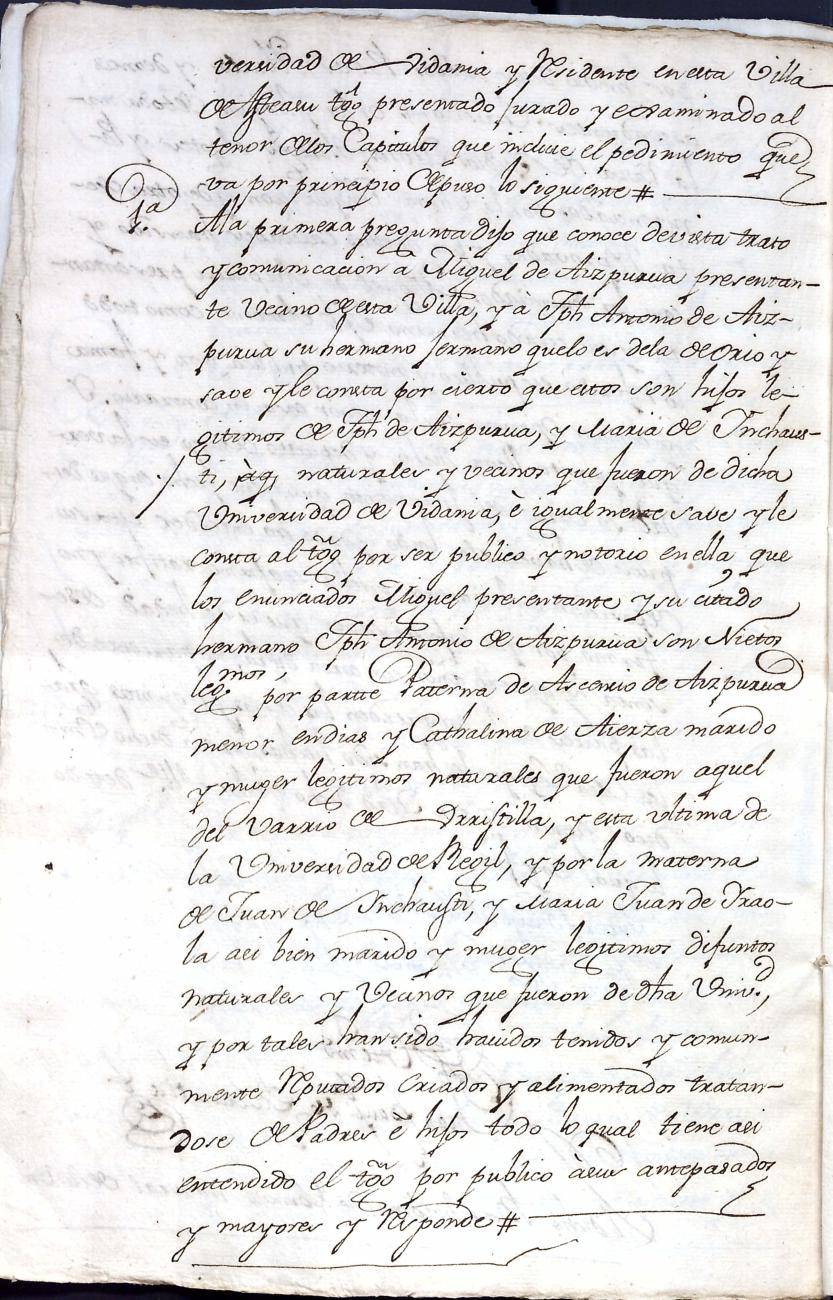 versidad de Vidania y Residente en esta Villa
de Asteasu tgo presentado Jurado y examinado al
tenor de los Capitulos que inclue el pedimiento que
va por principio Depuso lo siguiente #
1.a
Ala primera pregunta dijo que conoce de vista trato
y comunicacion à Miguel de Aizpurua presentan-
te vecino de esta Villa, y à Jph Antonio de Aiz-
purua su hermano Jermano que lo es de la de Orio y
save y le consta por cierto que estos son hijos le-
gitimos de Jph de Aizpurua, y Maria de Ynchaus-
ti, naturales y vecinos que fueron de dicha
Universidad de Vidania, è igualmente save y le
consta al tgo por ser publico y notorio en ella que
los enunciados Miguel presentante y su citado
hermano Jph Antonio de Aizpurua son Nietos
legmos, por partte Paterna de Ascencio de Aizpurua
menor en dias y Cathalina de Aierza marido
y muger legitimos naturales que fueron aquel
del Varrio de Urristilla, y esta ultima de
la Universidad de Regil, y por la materna
de Juan de Ynchausti, y Maria Juan de Yrao-
la asi bien marido y muger legitimos difuntos
naturales y Vecinos que fueron de dha Univ.d,
y por tales han sido havidos tenidos y comun-
mente Reputados criados y alimentados tratan-
dose de Padres è hijos todo lo qual tiene asi
entendido el tgo por publico à sus antepasados
y mayores y Responde #